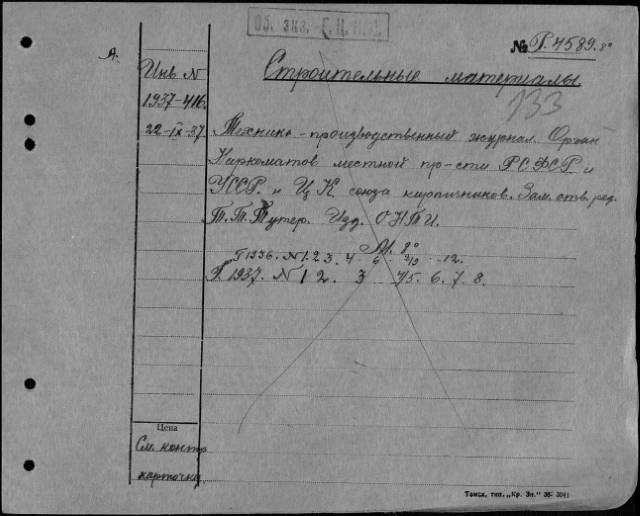 Об. экз. Г.Ц.К.П.
№ Р.4589. 8°
А.
Инв N
Строительные материалы
133
1937-416
22-IX-37.
Технико-производственный журнал. Орган
Наркоматов местной пр-сти РСФСР. и
УССР. и ЦК союза кирпичников. Зам. отв. ред.
Т.Т. Тутер. Изд. ОНТИ.
М. 8°
Г 1936. N 1. 2 3. 4 6 8/9 12.
Г. 1937. N 1 2. 3 4/5. 6. 7. 8.
Цена
См. контр
карточку
Томск, тип. „Кр. Зн." 36- 3041